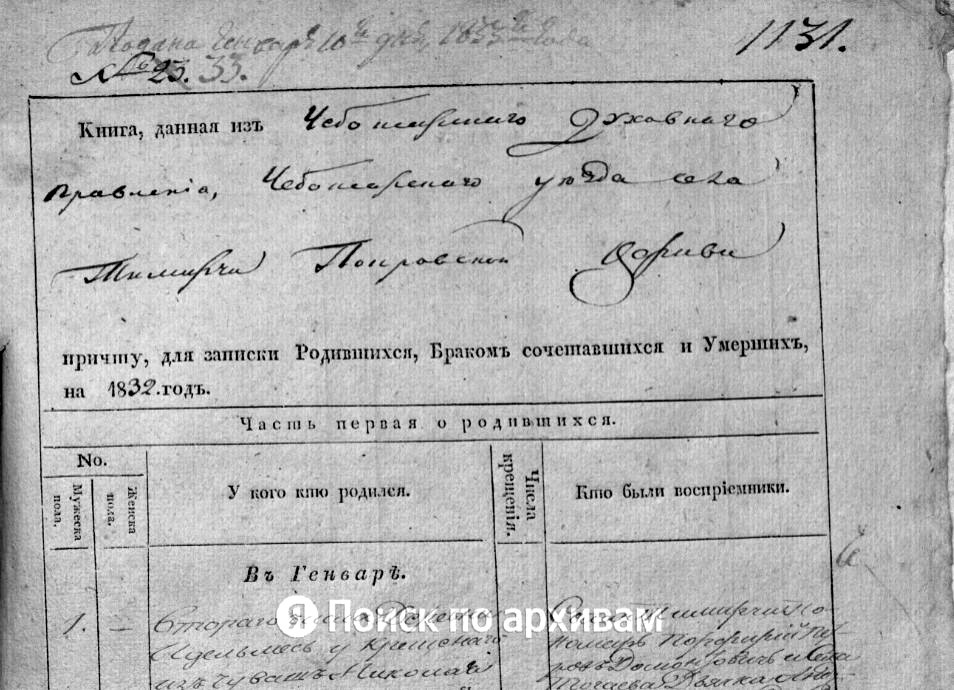 Подана Генваря 10го дня, 1833го года
1131.
№ 23. 33.
Книга, данная изъ Чебоксарскаго Духовнаго
Правленія, Чебоксарскаго уѣзда села
Тимирчи Покровской Церкви
причту, для записки Родившихся, Бракомъ сочетавшихся и Умершихъ,
на 1832.годъ.
Часть первая о родившихся.
No.
Мужеска пола.
Женска пола.
У кого кто родился.
Числа крещенія.
Кто были воспріемники.
Въ Генварѣ.
1. —
Втораго
у крещенаго
изъ чувашъ Николая
Порфирій Пет-
ровъ
Дьячка
Поиск по архивам